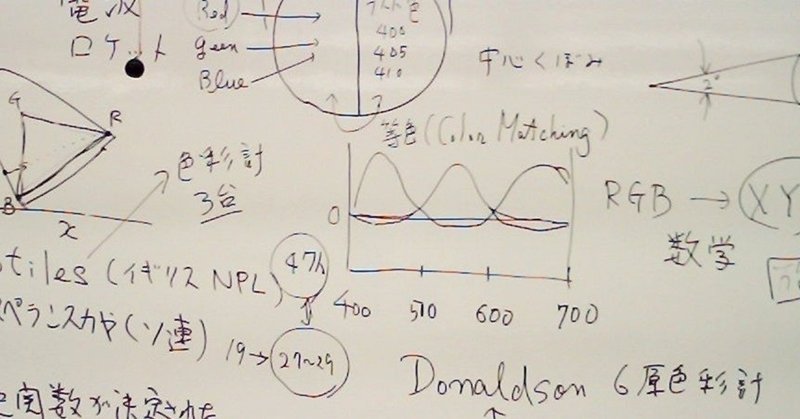 電波
ロケット
Red
geen
Blue
テスト色
400
405
410
中心くぼみ
2°
G
R
B
x
色彩計
3台
等色(Color Matching)
0
400
510
600
700
RGB → XY
数学
stiles (イギリス NPL)
ペランスカヤ (ソ連)
47人
19→ 27~29
Donaldson 6原色彩計
関数が決定された